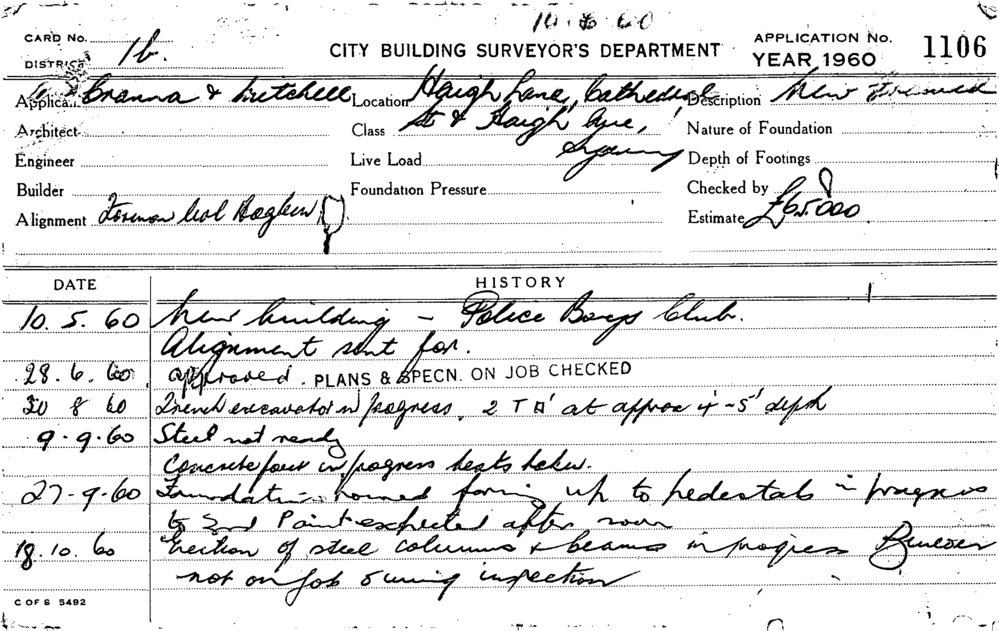 10. 6 60
CARD No.
DISTRICT 1b.
CITY BUILDING SURVEYOR'S DEPARTMENT
APPLICATION No.
YEAR 1960
1106
Applica. Cranna & Mitchell
Location Haigh Lane, Cathedral
Description New
Architect
Class St & Haigh Ave,
Nature of Foundation
Engineer
Live Load Sydney
Depth of Footings
Builder
Foundation Pressure
Checked by
Alignment Foreman
Estimate £65000
DATE
HISTORY
10. 5. 60 New building - Police Boys Club.
Alignment sent for.
28. 6. 60 approved. PLANS & SPECN. ON JOB CHECKED
30 8 60 Trench excavator in progress, 2 at approx 4'-5' depth
9. 9. 60 Steel not ready
Concrete pour in progress tests taken.
27-9.60 Foundation forming up to pedestals in progress
to 2nd expected after noon
18.10. 60 Erection of steel columns & beams in progress
not on job during inspection
C OF S 5492